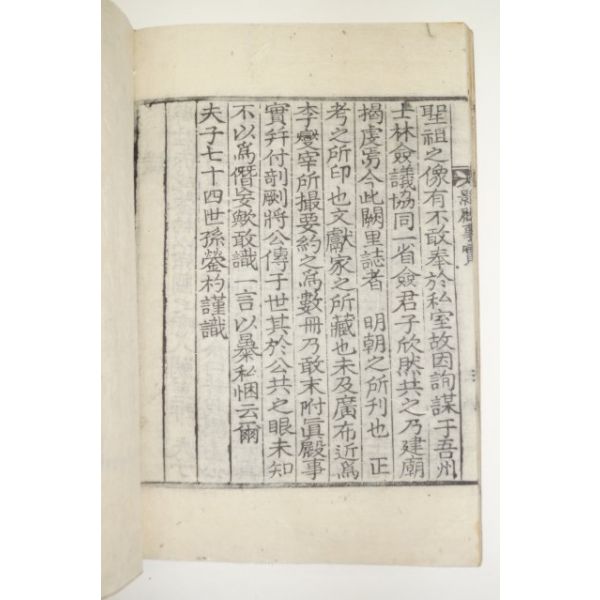 聖祖之像有不敢奉於私室故因詢謀于吾州
士林僉議協同一省僉君子欣然共之乃建廟
揭虔焉今此闕里誌者 明朝之所刊也 正
考之所印也文獻家之所藏也未及廣布近爲
李燮宰所撮要約之爲數冊乃敢末附眞殿事
實幷付剞劂將公傳于世其於公共之眼未知
不以爲僭妄歟敢識一言以暴私悃云爾
夫子七十四世孫瑩杓謹識
影殿事實